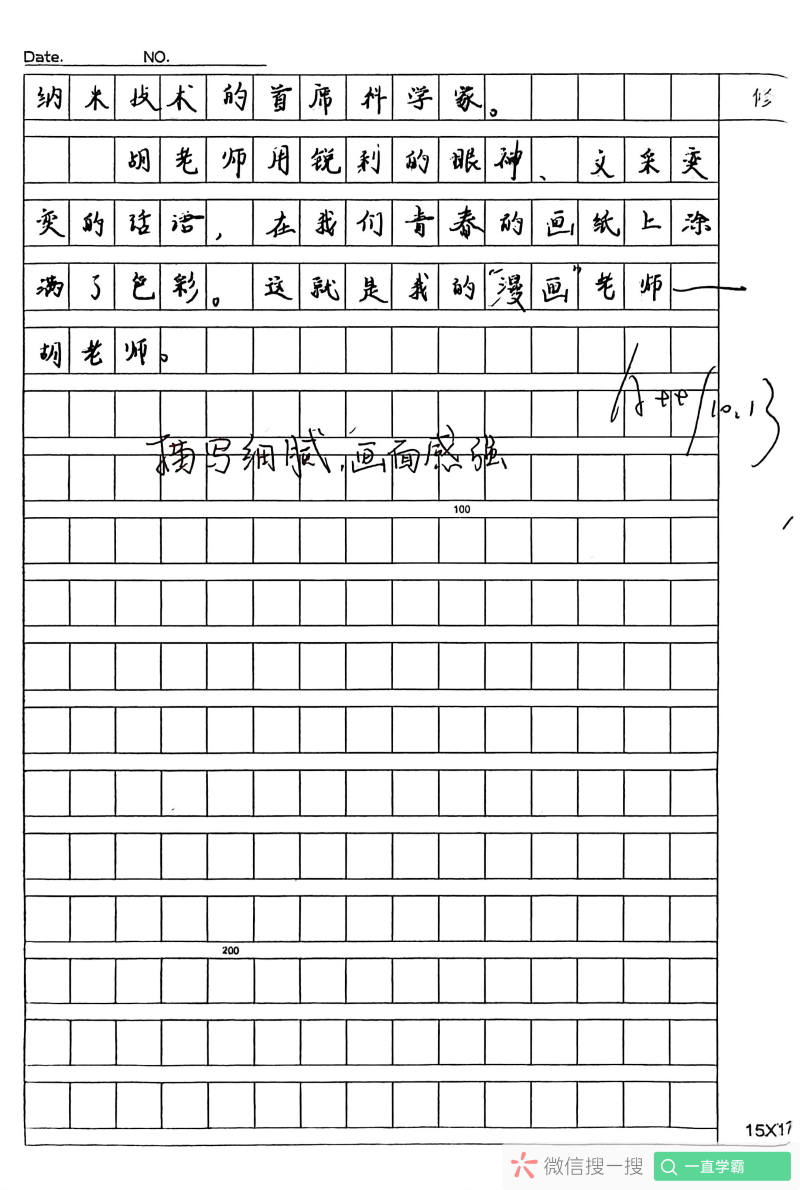 Date. NO.
纳米技术的首席科学家。
修
胡老师用锐利的眼神、文采奕
奕的话语，在我们青春的画纸上涂
满了色彩。这就是我的“漫画”老师——
胡老师。
A++ 10.13
描写细腻，画面感强
100
200
15X17
微信搜一搜
一直学霸